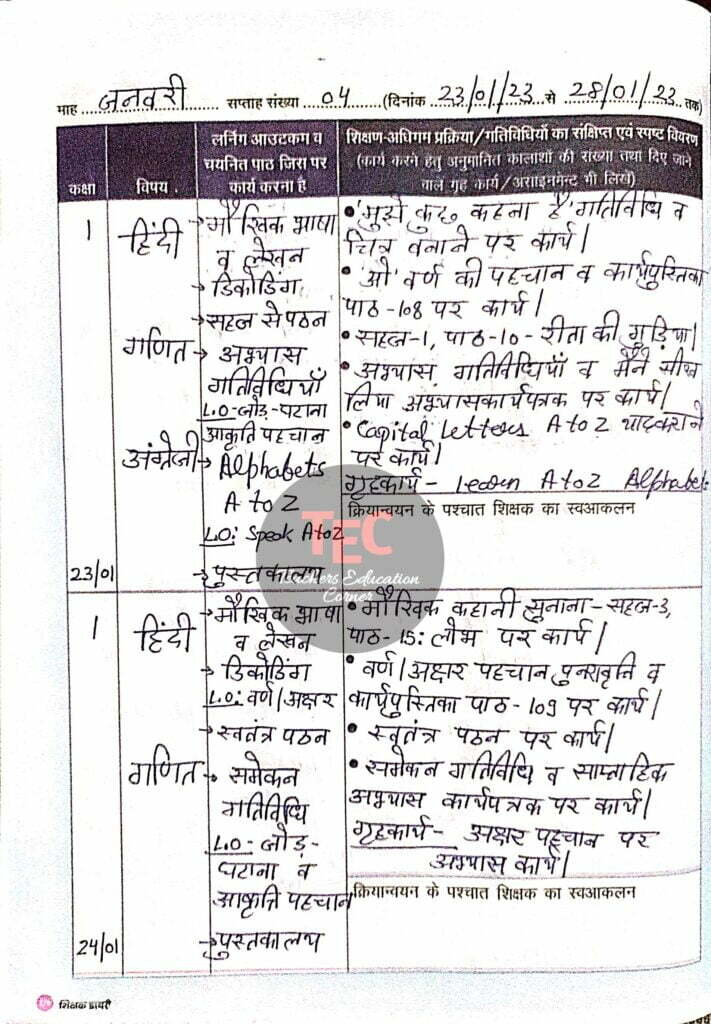 माह जनवरी सप्ताह संख्या 04 (दिनांक 23/01/23 से 28/01/23 तक)
कक्षा
विषय
लर्निंग आउटकम व
चयनित पाठ जिस पर
कार्य करना है
शिक्षण-अधिगम प्रक्रिया/गतिविधियों का संक्षिप्त एवं स्पष्ट विवरण
(कार्य करने हेतु अनुमानित कालांशों की संख्या तथा दिए जाने
वाले गृह कार्य/असाइनमेन्ट भी लिखें)
1
हिंदी
गणित
अंग्रेजी
23/01
→ मौखिक भाषा
व लेखन
→ डिकोडिंग
→ सहज से पठन
→ अभ्यास
गतिविधियाँ
L.O-जोड़-घटाना
आकृति पहचान
→ Alphabets
A to Z
L.O: Speak A to Z
→ पुस्तकालय
• 'मुझे कुछ कहना है' गतिविधि व
चित्र बनाने पर कार्य|
• 'ओ' वर्ण की पहचान व कार्यपुस्तिका
पाठ-108 पर कार्य|
• सहज-1, पाठ-10- रीता की गुड़िया|
• अभ्यास गतिविधियाँ व मैंने सीख
लिया अभ्यासकार्यपत्रक पर कार्य|
• Capital Letters A to Z याद कराने
पर कार्य|
गृहकार्य - Learn A to Z Alphabet
क्रियान्वयन के पश्चात शिक्षक का स्वआकलन
TEC
Teachers Education
Corner
1
हिंदी
गणित
24/01
→ मौखिक भाषा
व लेखन
→ डिकोडिंग
L.O: वर्ण/अक्षर
→ स्वतंत्र पठन
→ समेकन
गतिविधि
L.O- जोड़-
घटाना व
आकृति पहचान
→ पुस्तकालय
• मौखिक कहानी सुनाना-सहज-3,
पाठ-15: लोभ पर कार्य|
• वर्ण/अक्षर पहचान पुनरावृत्ति व
कार्यपुस्तिका पाठ-109 पर कार्य|
• स्वतंत्र पठन पर कार्य|
• समेकन गतिविधि व साप्ताहिक
अभ्यास कार्यपत्रक पर कार्य|
गृहकार्य- अक्षर पहचान पर
अभ्यास कार्य|
क्रियान्वयन के पश्चात शिक्षक का स्वआकलन
शिक्षक डायरी